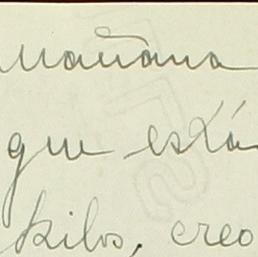 Mañana
que está
kilos, creo